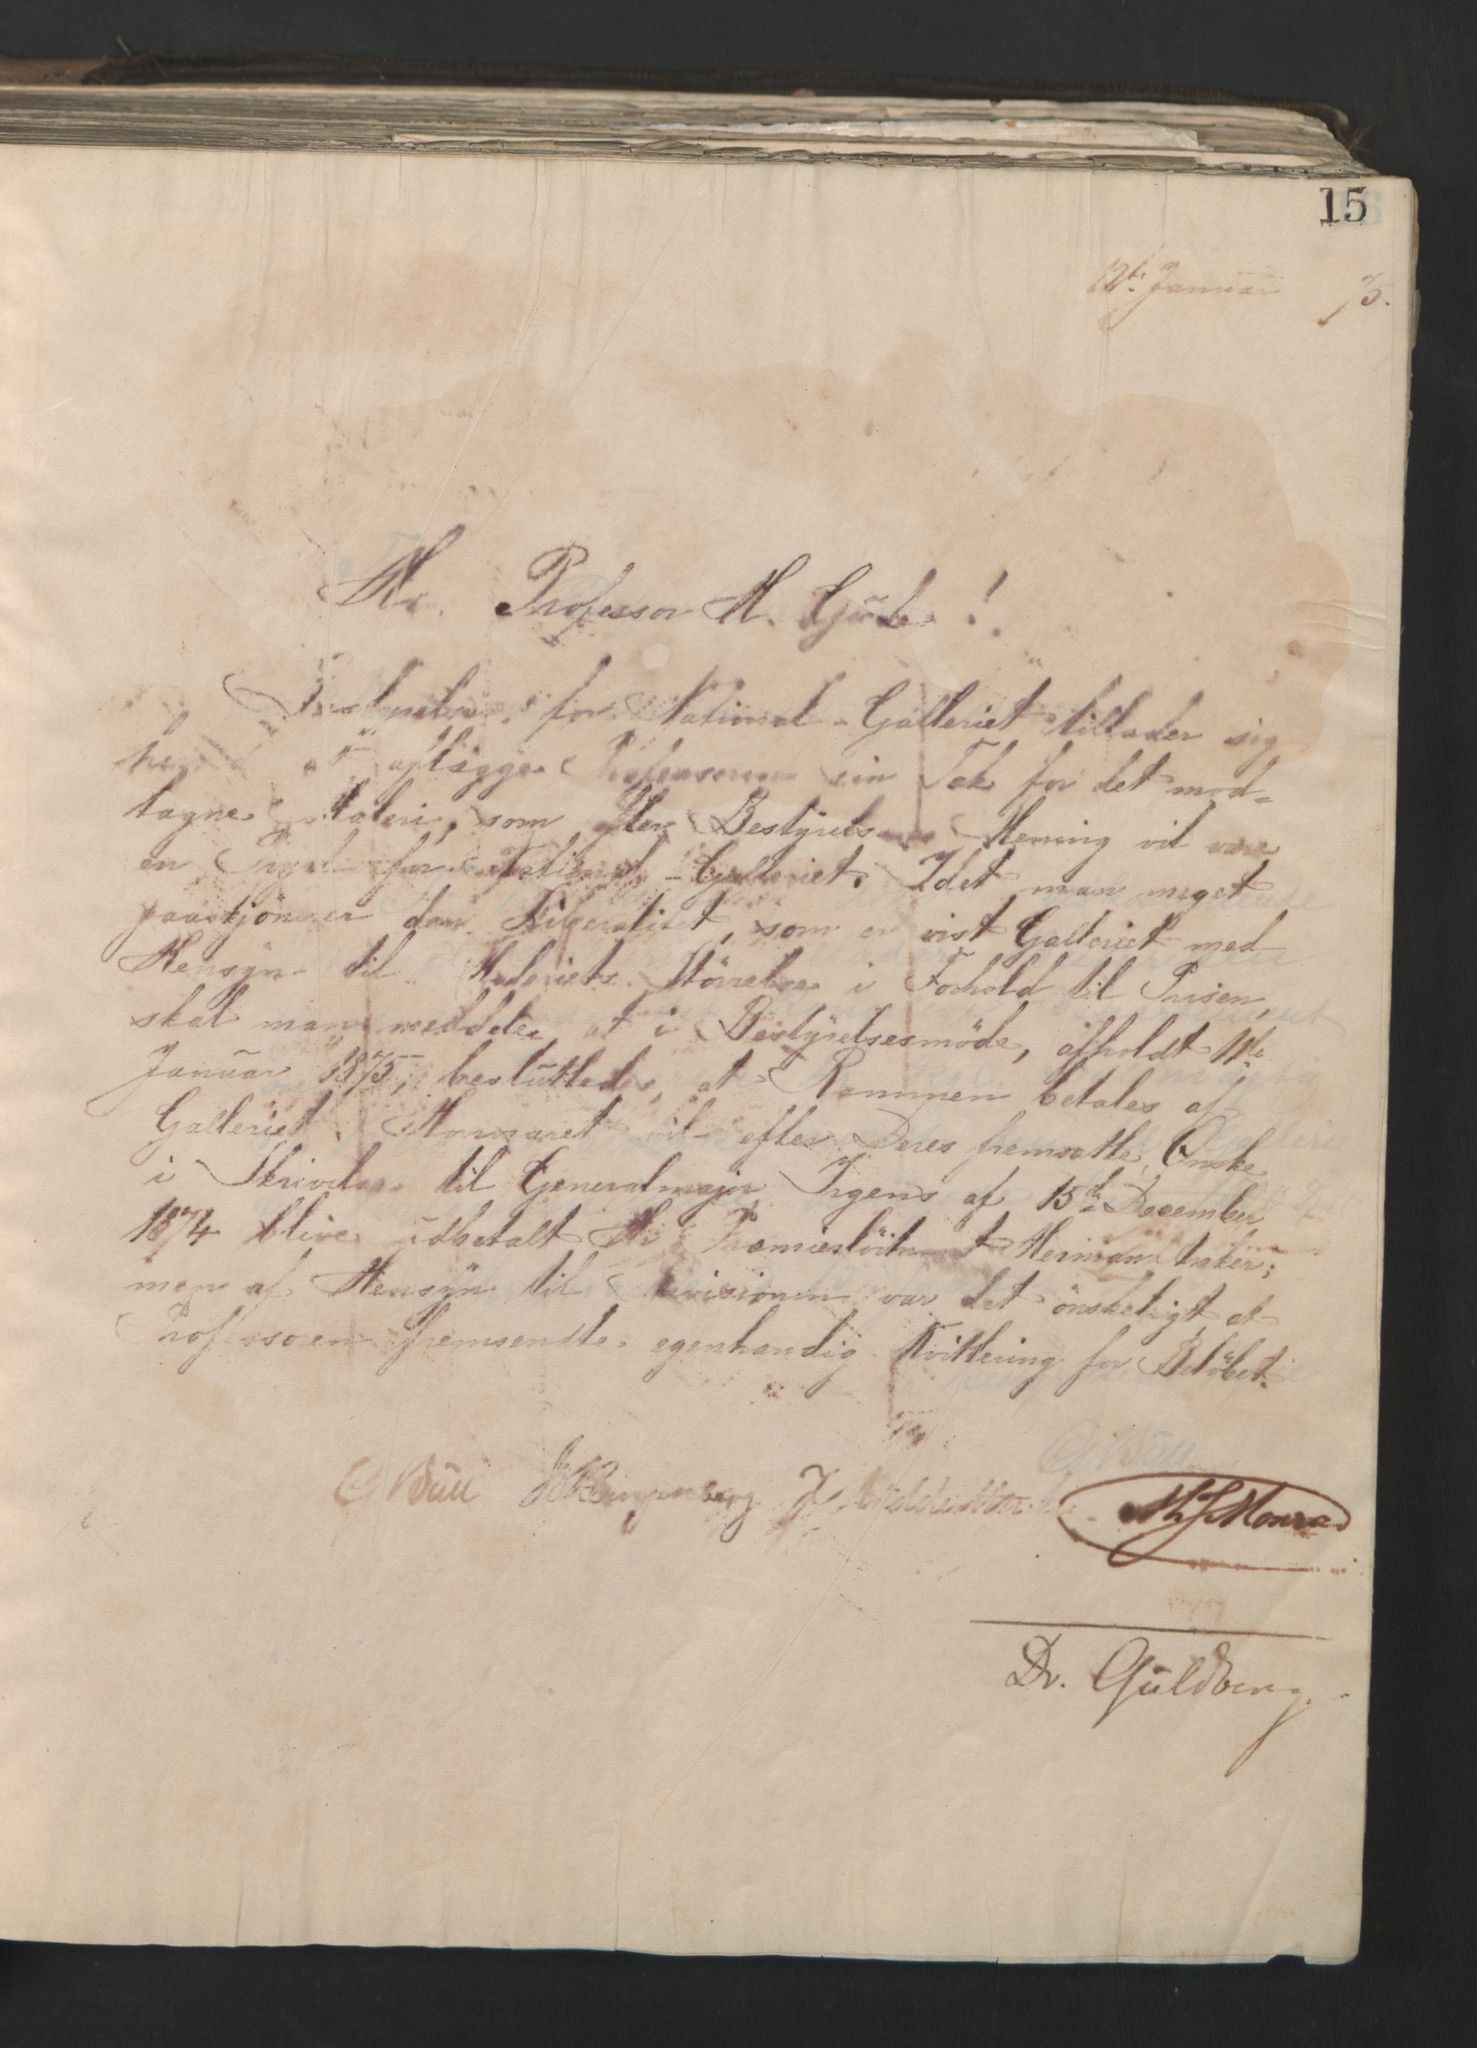 15
12te Januar 75.
Hr. Professor H. Gude!
Bestyrelsen for National-Galleriet tillader sig
herved at aflægge Professoren sin Tak for det mod-
tagne Maleri, som efter Bestyrelsens Mening vil være
en Pryd for National-Galleriet. Idet man meget
paaskjønner den Liberalitet, som er vist Galleriet med
Hensyn til Maleriets Størrelse i Forhold til Prisen,
skal man meddele, at i Bestyrelsesmøde, afholdt 11te
Januar 1875, besluttedes, at Rammen betales af
Galleriet. Honoraret vil efter Deres fremsatte Ønske
i Skrivelse til Generalmajor Irgens af 15de December
1874 blive udbetalt Hr. Premierløitnant Herman Anker;
men af Hensyn til Revisionen var det ønskeligt at
Professoren fremsendte egenhændig Kvittering for Beløbet.
G Bull JN Bergenberg J Middelthun M J Monrad
Dr. Guldberg.